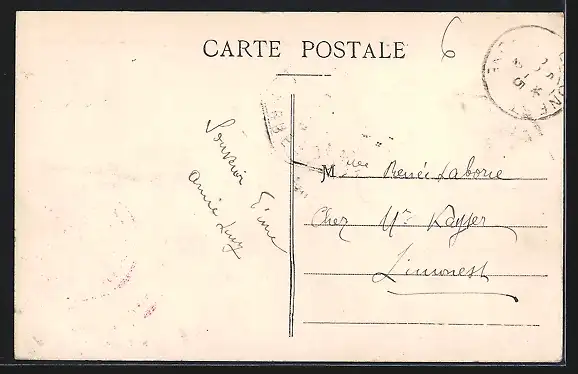 CARTE POSTALE
6
Souvenir d'une
amie
Mlle Renée Laborie
Chez Mr Kayser
Limonest